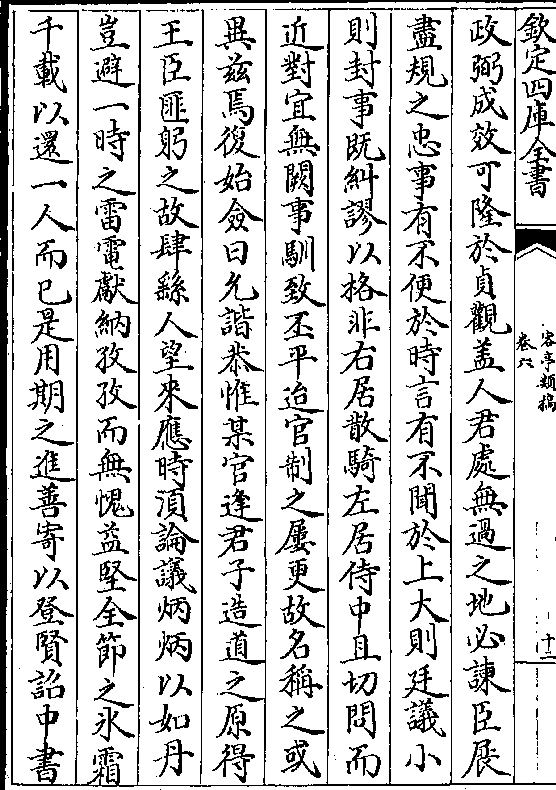 欽定四庫全書
客亭類稿
卷六
十二
政弼成效可隆於貞觀蓋人君處無過之地必諫臣展
盡規之忠事有不便於時言有不聞於上大則廷議小
則封事既糾謬以格非右居散騎左居侍中且切問而
近對宜無闕事馴致丕平迨官制之屢更故名稱之或
異兹焉復始僉曰允諧恭惟某官逢君子造道之原得
王臣匪躬之故肆繇人望來應時須論議炳炳以如丹
豈避一時之雷電獻納孜孜而無愧益堅全節之氷霜
千載以還一人而已是用期之進善寄以登賢詔中書